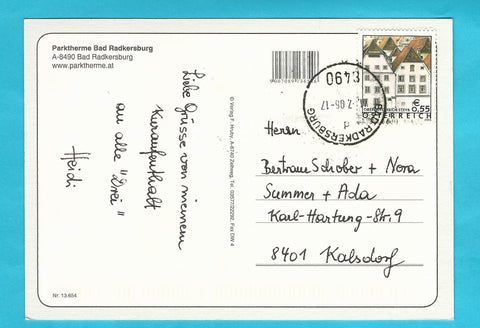 Parktherme Bad Radkersburg
A-8490 Bad Radkersburg
www.parktherme.at
Liebe Grüsse von meinem
Kuraufenthalt
an alle "Drei"
Heidi
© Verlag F. Hruby, A-8740 Zeltweg, Tel. 03577/22292, Fax DW 4
8490
BAD RADKERSBURG
€ 0,55
ÖSTERREICH
Herrn
Bertram Schober + Nora
Summer + Ada
Karl-Hartung-Str. 9
8401 Kalsdorf
Nr. 13.654